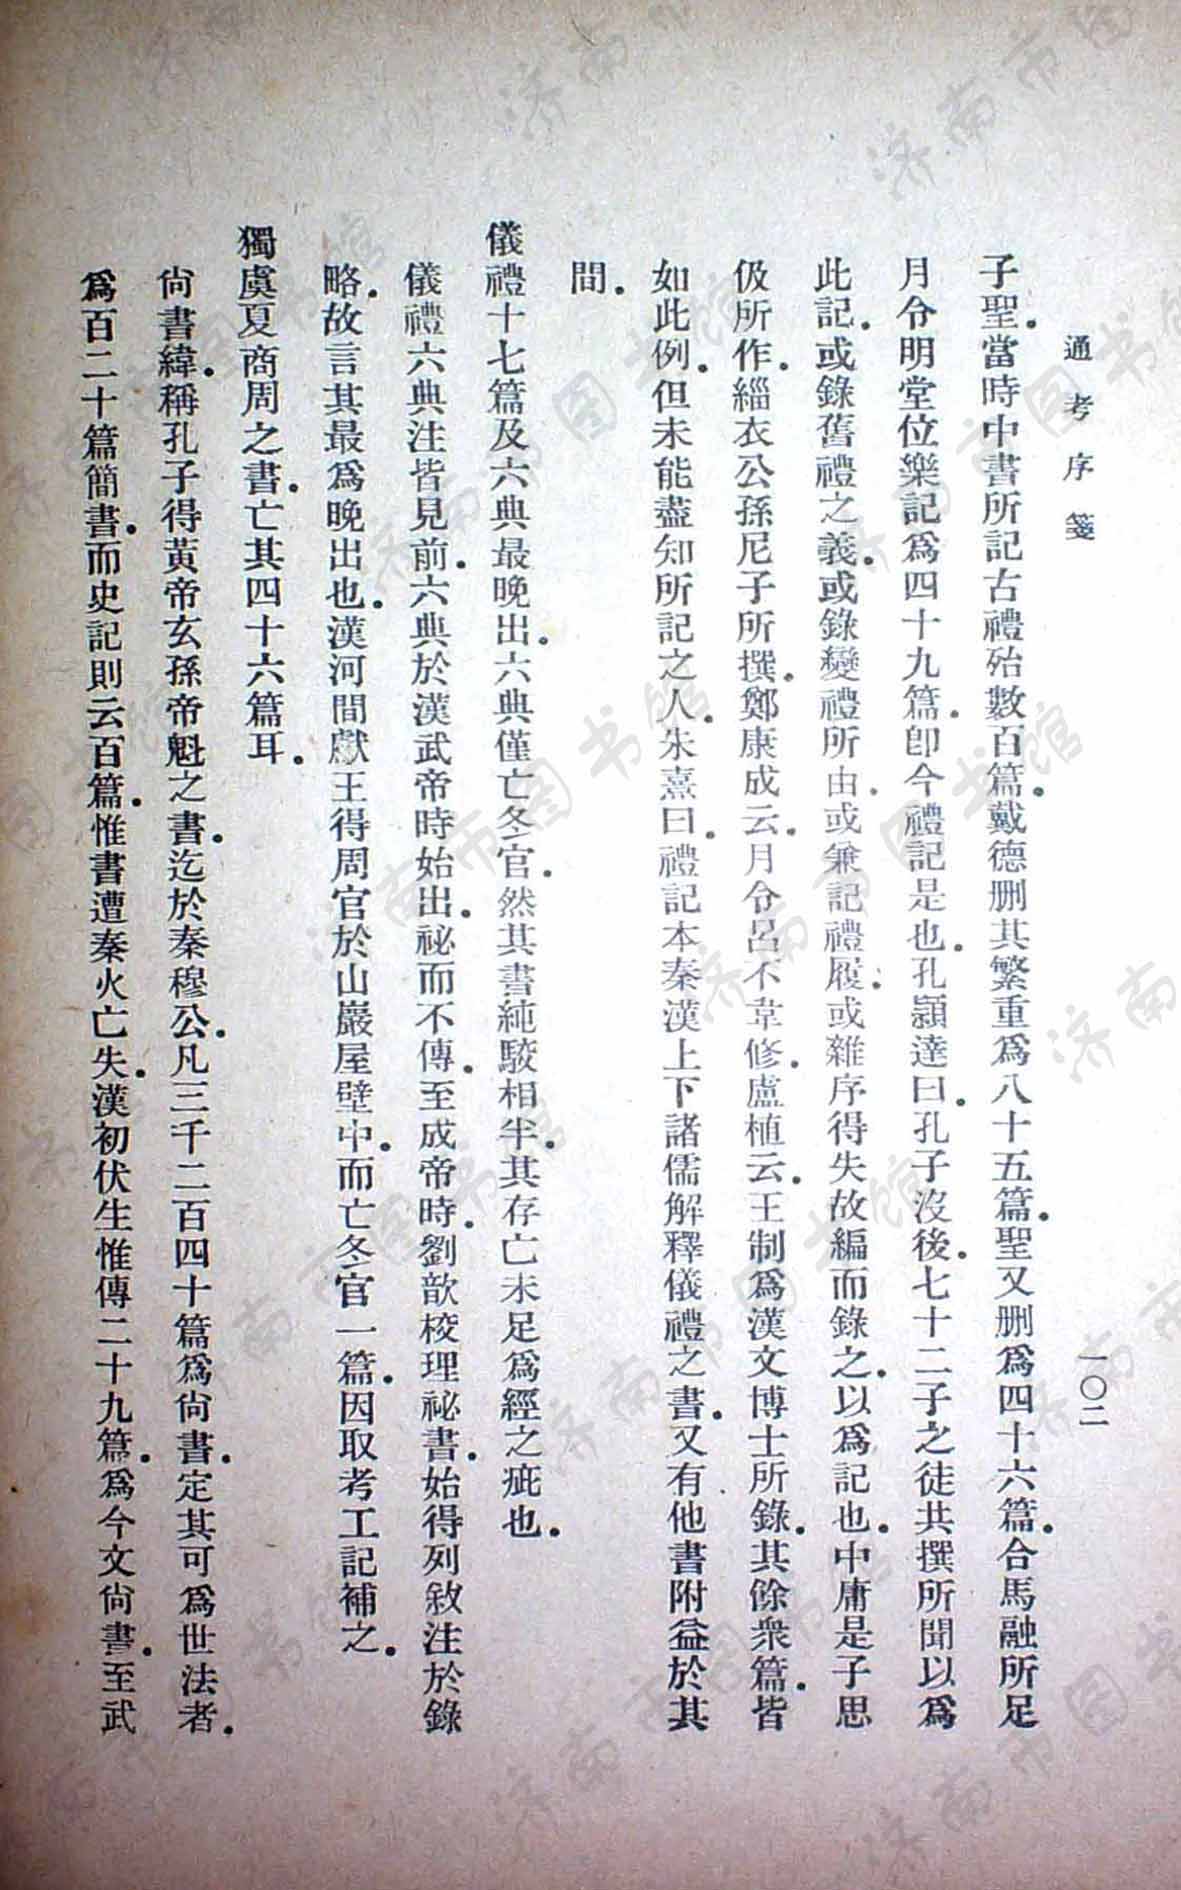 通考序箋
一〇二
子聖．當時中書所記古禮殆數百篇．戴德删其繁重爲八十五篇．聖又删爲四十六篇．合馬融所足
月令明堂位樂記爲四十九篇．卽今禮記是也．孔穎達曰．孔子沒後．七十二子之徒共撰所聞以爲
此記．或錄舊禮之義．或錄變禮所由．或兼記禮履．或雜序得失故編而錄之．以爲記也．中庸是子思
伋所作．緇衣公孫尼子所撰．鄭康成云．月令呂不韋修．盧植云．王制爲漢文博士所錄．其餘衆篇．皆
如此例．但未能盡知所記之人．朱熹曰．禮記本秦漢上下諸儒解釋儀禮之書．又有他書附益於其
間．
儀禮十七篇及六典最晚出．六典僅亡冬官．然其書純駁相半．其存亡未足爲經之疵也．
儀禮六典注皆見前．六典於漢武帝時始出．祕而不傳．至成帝時．劉歆校理祕書．始得列敘注於錄
略．故言其最爲晚出也．漢河間獻王得周官於山巖屋壁中．而亡冬官一篇．因取考工記補之．
獨虞夏商周之書．亡其四十六篇耳．
尙書緯．稱孔子得黃帝玄孫帝魁之書．迄於秦穆公．凡三千二百四十篇爲尙書．定其可爲世法者．
爲百二十篇簡書．而史記則云百篇．惟書遭秦火亡失．漢初伏生惟傳二十九篇．爲今文尙書．至武
济南市图书馆